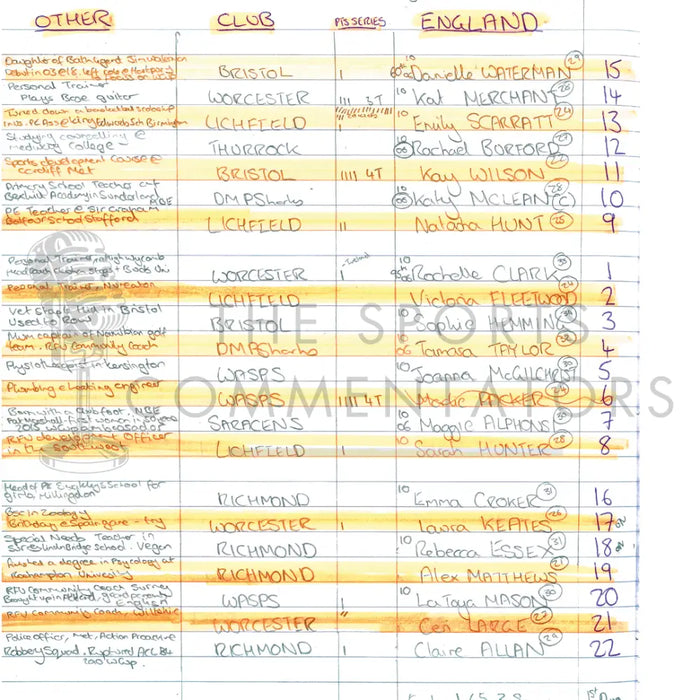 OTHER CLUB PTS SERIES ENGLAND
Daughter of Bath legend Jim Waterman
BRISTOL 1 60th 10 Danielle WATERMAN 29 15
Personal Trainer
Plays Base guitar WORCESTER 111 3T 10 Kat MERCHANT 14
Turned down a basketball scholarship
LICHFIELD 1 10 Emily SCARRATT 24 13
Studying counselling @
Medway College THURROCK 10 06 Rachael BURFORD 12
Sports development course @
Cardiff Met BRISTOL 1111 4T Kay WILSON 22 11
Primary School Teacher
DMP Sharks 10 06 Katy MCLEAN 28 C 10
PE Teacher @ Sir Graham
Balfour School Stafford LICHFIELD 11 Natasha HUNT 25 9
WORCESTER 1 10 06 Rochelle CLARK 33 1
Personal Trainer, Nuneaton
LICHFIELD Victoria FLEETWOOD 24 2
Vet in Bristol
Used to Row BRISTOL 10 Sophie HEMMING 3
Mum captain of Namibian golf
team. RFU Community Coach DMP Sharks 10 06 Tamara TAYLOR 32 4
Physiotherapist in Kensington WASPS 10 Joanna MCGILCHRIST 5
Plumbing & heating engineer WASPS 1111 4T PACKER 6
Born with a club foot. MBE
SARACENS 10 06 Maggie ALPHONSI 30 7
RFU development Officer
in the southwest LICHFIELD 1 10 Sarah HUNTER 28 8
Head of PE School for
girls Hillingdon RICHMOND 10 Emma CROKER 31 16
Bsc in Zoology
WORCESTER 1 Laura KEATES 26 17
Special Needs Teacher in
Bridge School. Vegan RICHMOND 1 10 Rebecca ESSEX 31 18
Finished a degree in Psychology at
Roehampton University RICHMOND Alex MATTHEWS 21 19
RFU Community Coach Surrey
WASPS 1 10 La Toya MASON 30 20
RFU Community Coach, Wiltshire
WORCESTER 11 Ceri LARGE 21
Police officer, Met, Action Proactive
Robbery Squad. Ruptured ACL B4
2010 W Cup. RICHMOND 1 Claire ALLAN 29 22
THE SPORTS
COMMENTATORS